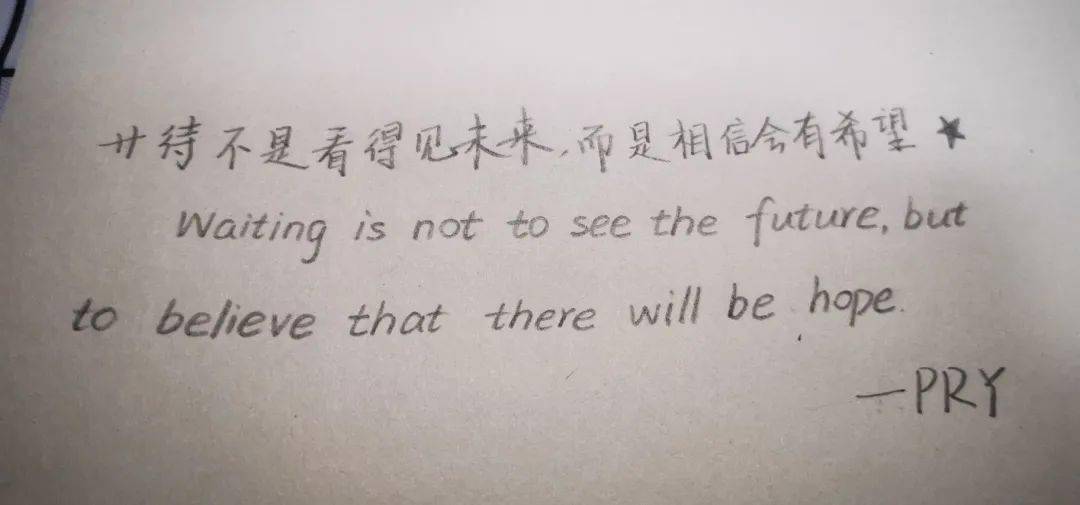 廾待不是看得见未来,而是相信会有希望★
Waiting is not to see the future, but
to believe that there will be hope.
—PRY